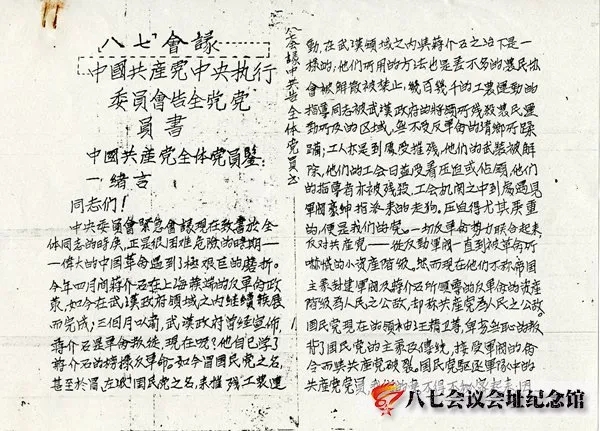 八七會議
中國共產党中央执行
委員會告全党党
員書
中國共產党全体党員鑒:
一 緒言
同志们!
中央委員會緊急會議現在致書於全
体同志的時候,正是很困难危險的時期——
一偉大的中国革命遇到了極艰巨的磨折。
今年四月间蔣介石在上海策端的反革命政
策,如今在武漢政府領域之内继續發展
而完成;三個月以前,武漢政府曾经宣佈
蔣介石是革命叛徒,現在呢?他自己学了
蔣介石的榜樣反革命,如今冒国民党之名,
甚至於冒左派国民党之名,来摧残工農運
八七会議中共告全体党員书
動,在武漢領域之内與蔣介石之治下是一
樣的,他们所用的方法也是差不多的農民协
會被解散被禁止,幾百幾千的工農運動的
指導同志被武漢政府的將領所残殺農民運
動所及的区域,無不受反革命的清鄉所蹂
躪;工人亦是到處受摧残,他们的武裝被解
除,他们的工会日益受着压迫或佔領,他们
的指導者亦被残殺,工会机関之中到處遇見
軍閥豪紳指派来的走狗。压迫得尤其嚴重
的,便是我们的党。一切反革命势力联合起来
反对共產党——從反動軍閥一直到被革命所
嚇慌的小資產階級。然而現在他们不称帝国
主義封建軍閥及蔣介石所領導的反革命的資產
階級為人民之公敌,却称共產党為人民之公敌。
国民党現在的領袖王精卫等,卑劣無恥的叛
背了国民党的主義及傳統,接受軍閥的命
令而與共產党破裂。国民党驱逐軍隊中的
共產党党員,
八七会议会址纪念馆